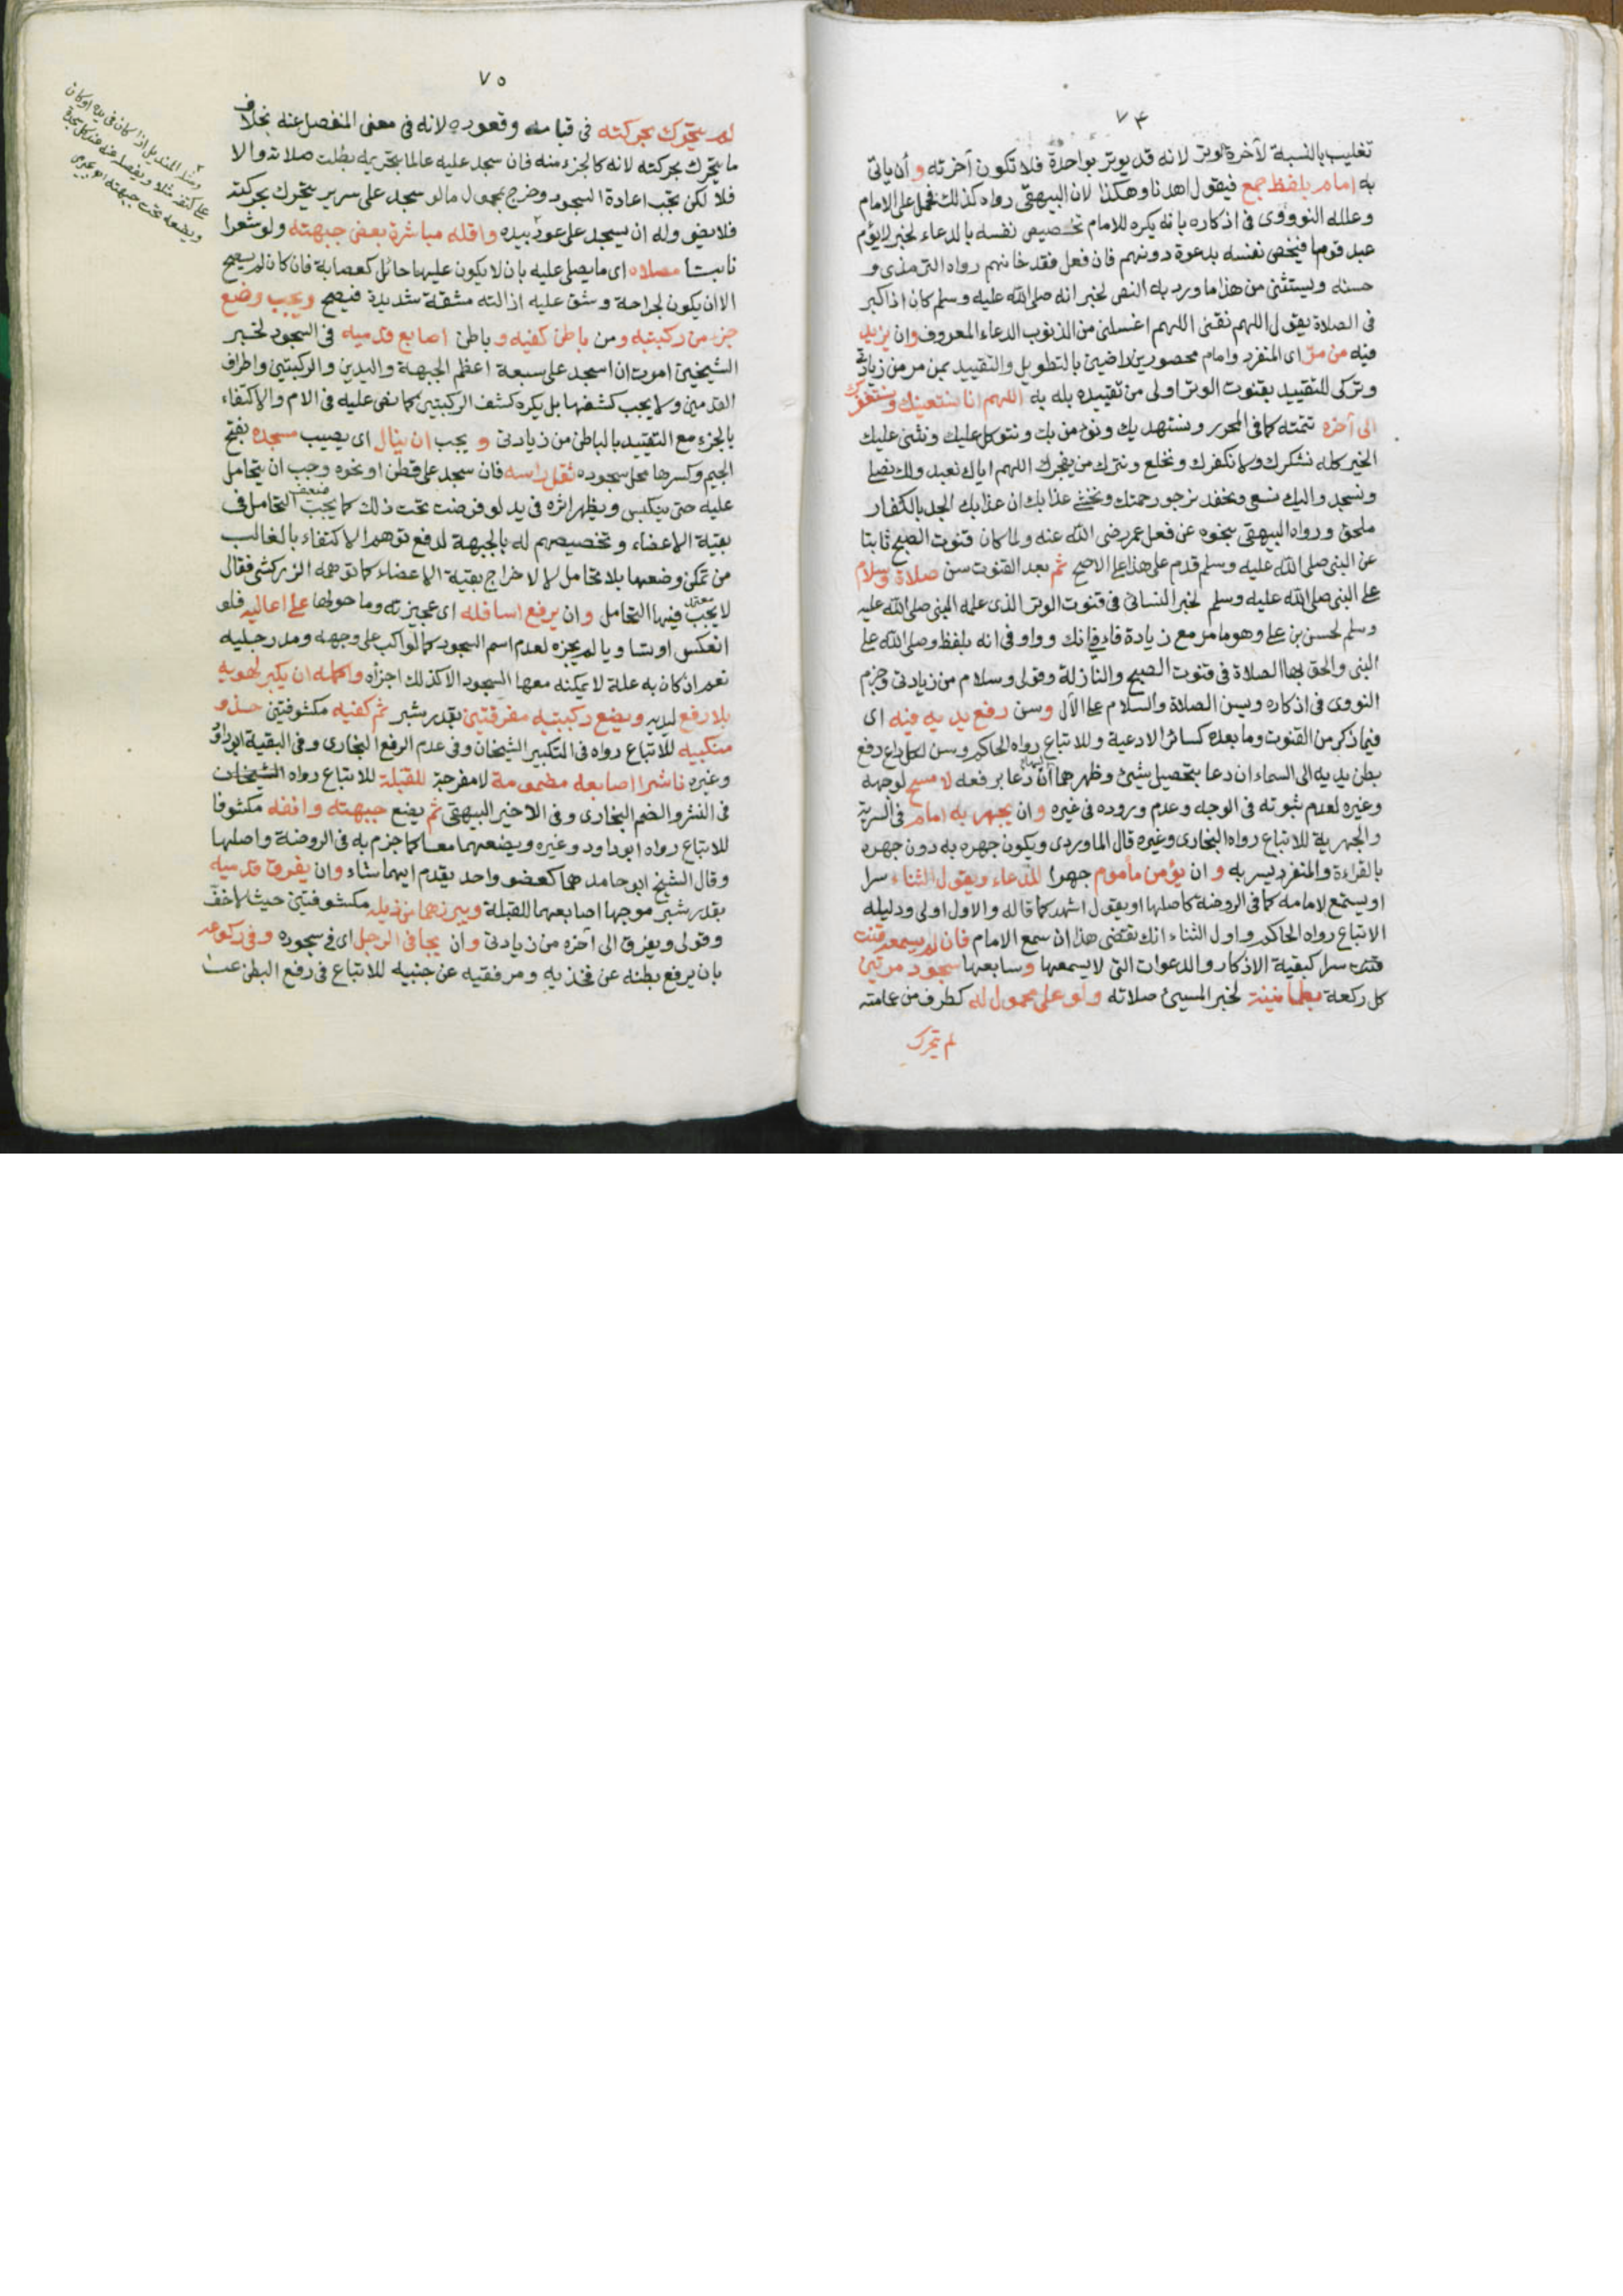 ٧٤
تغليب بالنسبة لآخرة الوتر لانه قد يوتر بواحدة فلا تكون آخرته وأن ياتى
به امام بلفظ جمع فيقول اهدنا وهكذا لان البيهقى رواه كذلك فحمل على الامام
وعلله النووى فى اذكاره بانه يكره للامام تخصيص نفسه بالدعاء لخبر لا يؤم
عبد قوما فيخص نفسه بدعوة دونهم فان فعل فقد خانهم رواه الترمذى و
حسنه ويستثنى من هذا ما ورد به النص لخبر انه صلى الله عليه وسلم كان اذا كبر
فى الصلاة يقول اللهم نقنى اللهم اغسلنى من الذنوب الدعاء المعروف وان يزيد
فيه من مرّ اى المنفرد وامام محصورين راضين بالتطويل والتقييد بمن مر من زيادتى
وتركى للتقييد بقنوت الوتر اولى من تقييده بله به اللهم انا نستعينك ونستغفرك
الى آخره تتمته كما فى المحرر ونستهديك ونؤمن بك ونتوكل عليك ونثنى عليك
الخير كله نشكرك ولا نكفرك ونخلع ونترك من يفجرك اللهم اياك نعبد ولك نصلى
ونسجد واليك نسعى ونحفد نرجو رحمتك ونخشى عذابك ان عذابك الجد بالكفار
ملحق ورواه البيهقى بنحوه عن فعل عمر رضى الله عنه ولما كان قنوت الصبح ثابتا
عن النبى صلى الله عليه وسلم قدم على هذا على الاصح ثم بعد القنوت سن صلاة وسلام
على النبى صلى الله عليه وسلم لخبر النسائى فى قنوت الوتر الذى علمه النبى صلى الله عليه
وسلم لحسن بن على وهو ما مر مع زيادة فاء فى انك وواو فى انه بلفظ وصلى الله على
النبى والحق بها الصلاة فى قنوت الصبح والنازلة وقولى وسلام من زيادتى وجزم
النووى فى اذكاره ويسن الصلاة والسلام على الآل وسن رفع يديه فيه اى
فيما ذكر من القنوت وما بعده كسائر الادعية وللاتباع رواه الحاكم ويسن لكل داع رفع
بطن يديه الى السماء ان دعا بتحصيل شيئ وظهرهما ان دعا برفعه لا مسح لوجهه
وغيره لعدم ثبوته فى الوجه وعدم وروده فى غيره وان يجهر به امام فى السرية
والجهرية للاتباع رواه البخارى وغيره قال الماوردى ويكون جهره به دون جهره
بالقراءة والمنفرد يسر به وان يؤمن مأموم جهرا للدعاء ويقول الثناء سرا
او يستمع لامامه كما فى الروضة كاصلها او يقول اشهد كما قاله والاول اولى ودليله
الاتباع رواه الحاكم واول الثناء انك تقضى هذا ان سمع الامام فان لم يسمعه قنت
قنت سرا كبقية الاذكار والدعوات التى لا يسمعها وسابعها سجود مرتين
كل ركعة بطمأنينة لخبر المسيئ صلاته ولو على محمول له كطرف من عامته
لم يتحرك
٧٥
لم يتحرك بحركته فى قيامه وقعوده لانه فى معنى المنفصل عنه بخلاف
ما يتحرك بحركته لانه كالجزء منه فان سجد عليه عالما بتحريمه بطلت صلاته والا
فلا لكن تجب اعادة السجود وخرج بمحمول ما لو سجد على سرير يتحرك بحركته
فلا يضر وله ان يسجد على عود بيده واقله مباشرة بعض جبهته ولو شعرا
نابتا مصلاه اى ما يصلى عليه بان لا يكون عليها حائل كعصابة فان كان لم يصح
الا ان يكون لجراحة وشق عليه ازالته مشقة شديدة فيصح ويجب وضع
جزء من ركبتيه ومن باطن كفيه و باطن اصابع قدميه فى السجود لخبر
الشيخين امرت ان اسجد على سبعة اعظم الجبهة واليدين والركبتين واطراف
القدمين ولا يجب كشفها بل يكره كشف الركبتين كما نص عليه فى الام والاكتفاء
بالجزء مع التقييد بالباطن من زيادتى و يجب ان ينال اى يصيب مسجده بفتح
الجيم وكسرها محل سجوده ثقل راسه فان سجد على قطن او نحوه وجب ان يتحامل
عليه حتى ينكبس ويظهر اثره فى يد لو فرضت تحت ذلك كما يجب التحامل فى
ضعيف
بقية الاعضاء وتخصيصهم له بالجبهة لدفع توهم الاكتفاء بالغالب
من تمكن وضعها بلا تحامل لا لاخراج بقية الاعضاء كما توهمه الزركشى فقال
لا يجب فيها التحامل وان يرفع اسافله اى عجيزته وما حولها على اعاليه فلو
معتمد
انعكس او تساويا لم يجزه لعدم اسم السجود كما لو اكب على وجهه ومد رجليه
نعم ان كان به علة لا يمكنه معها السجود الا كذلك اجزأه واكمله ان يكبر لهويه
بلا رفع ليديه ويضع ركبتيه مفرقتين بقدر شبر ثم كفيه مكشوفتين حذو
منكبيه للاتباع رواه فى التكبير الشيخان وفى عدم الرفع البخارى وفى البقية ابو داود
وغيره ناشرا اصابعه مضمومة لا مفرجة للقبلة للاتباع رواه الشيخان
فى النشر والضم البخارى وفى الاخير البيهقى ثم يضع جبهته وانفه مكشوفا
للاتباع رواه ابو داود وغيره ويضعهما معا كما جزم به فى الروضة واصلها
وقال الشيخ ابو حامد هما كعضو واحد يقدم ايهما شاء وان يفرق قدميه
بقدر شبر موجها اصابعهما للقبلة ويبرزهما من ذيله مكشوفتين حيث لا خف
وقولى ويفرق الى آخره من زيادتى وان يجافى الرجل اى فى سجوده وفى ركوعه
بان يرفع بطنه عن فخذيه ومرفقيه عن جنبيه للاتباع فى رفع البطن عن
ومثله المنديل اذا كان فى يده او كان
على كتفه مثلا ويفصله عنه عند كل سجدة
ويضعه تحت جبهته